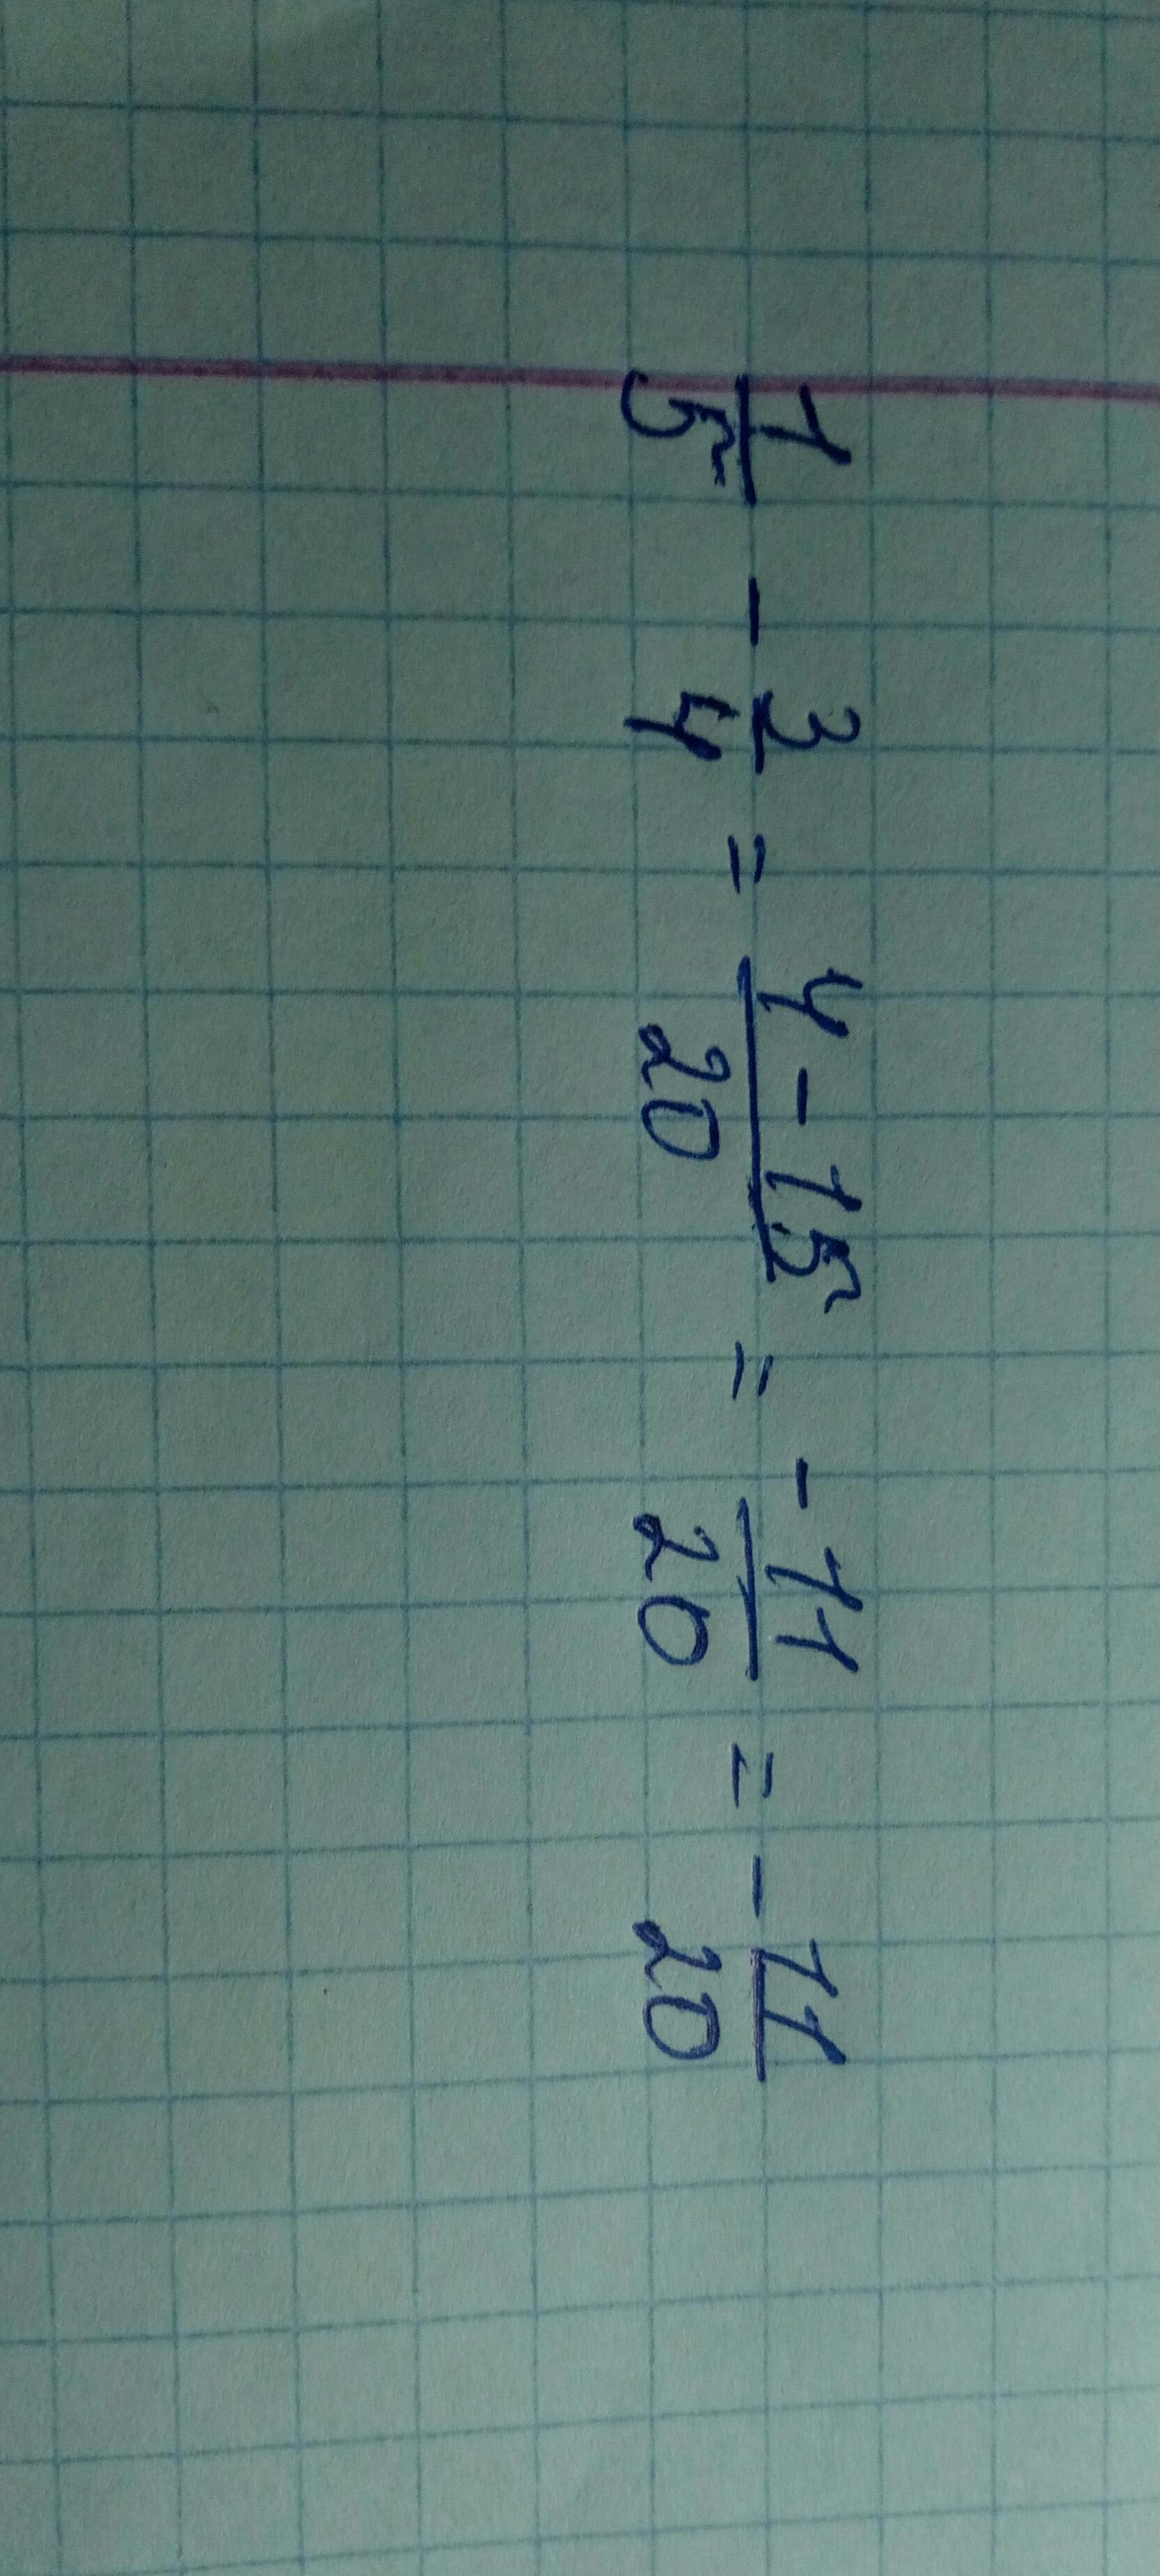 1/5 - 3/4 = (4 - 15)/20 = -11/20 = - 11/20